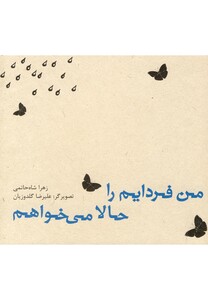 زهرا شاه‌حاتمی
تصویرگر: علیرضا گلدوزیان
من فردایم را
حالا می‌خواهم